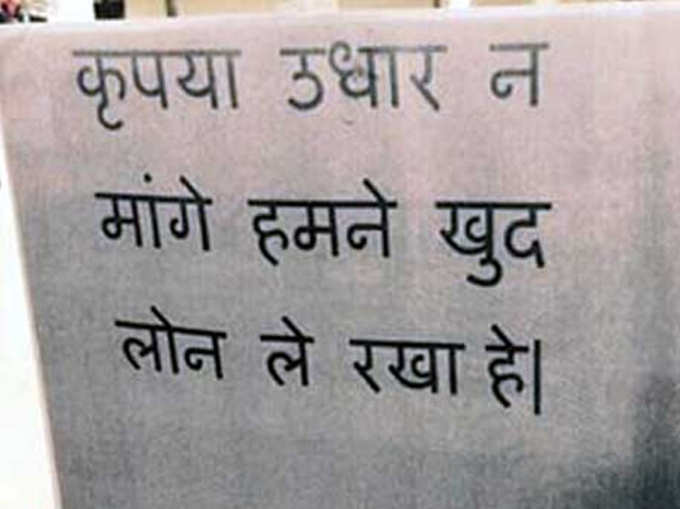 कृपया उधार न
मांगे हमने खुद
लोन ले रखा हे|